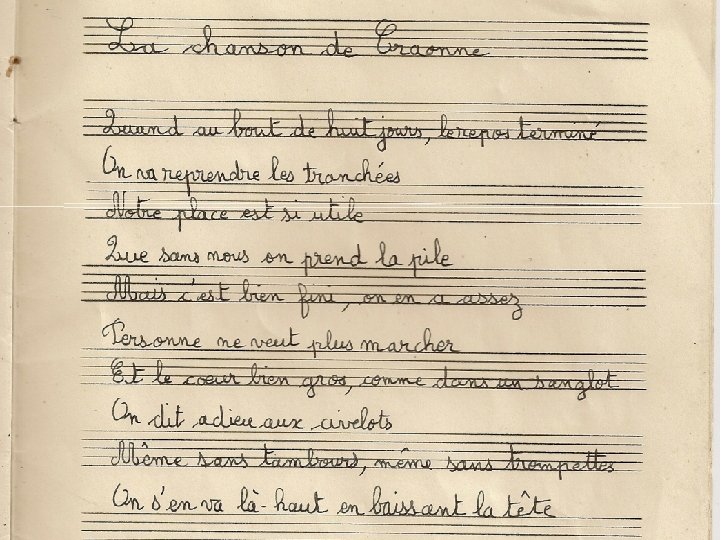 La chanson de Craonne
Quand au bout de huit jours, le repos terminé
On va reprendre les tranchées
Notre place est si utile
Que sans nous on prend la pile
Mais c'est bien fini, on en a assez
Personne ne veut plus marcher
Et le cœur bien gros, comme dans un sanglot
On dit adieu aux civelots
Même sans tambours, même sans trompettes
On s'en va là-haut en baissant la tête